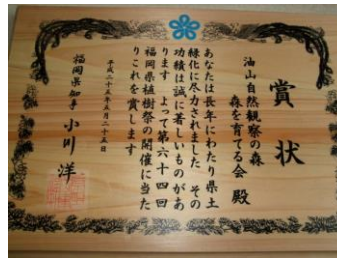 賞状
油山自然観察の森
森を育てる会 殿
あなたは長年にわたり県土
緑化に尽力されました その
功績は誠に著しいものがあ
ります よって第六十四回
福岡県植樹祭の開催に当た
りこれを賞します
平成二十五年五月二十五日
福岡県知事 小川 洋